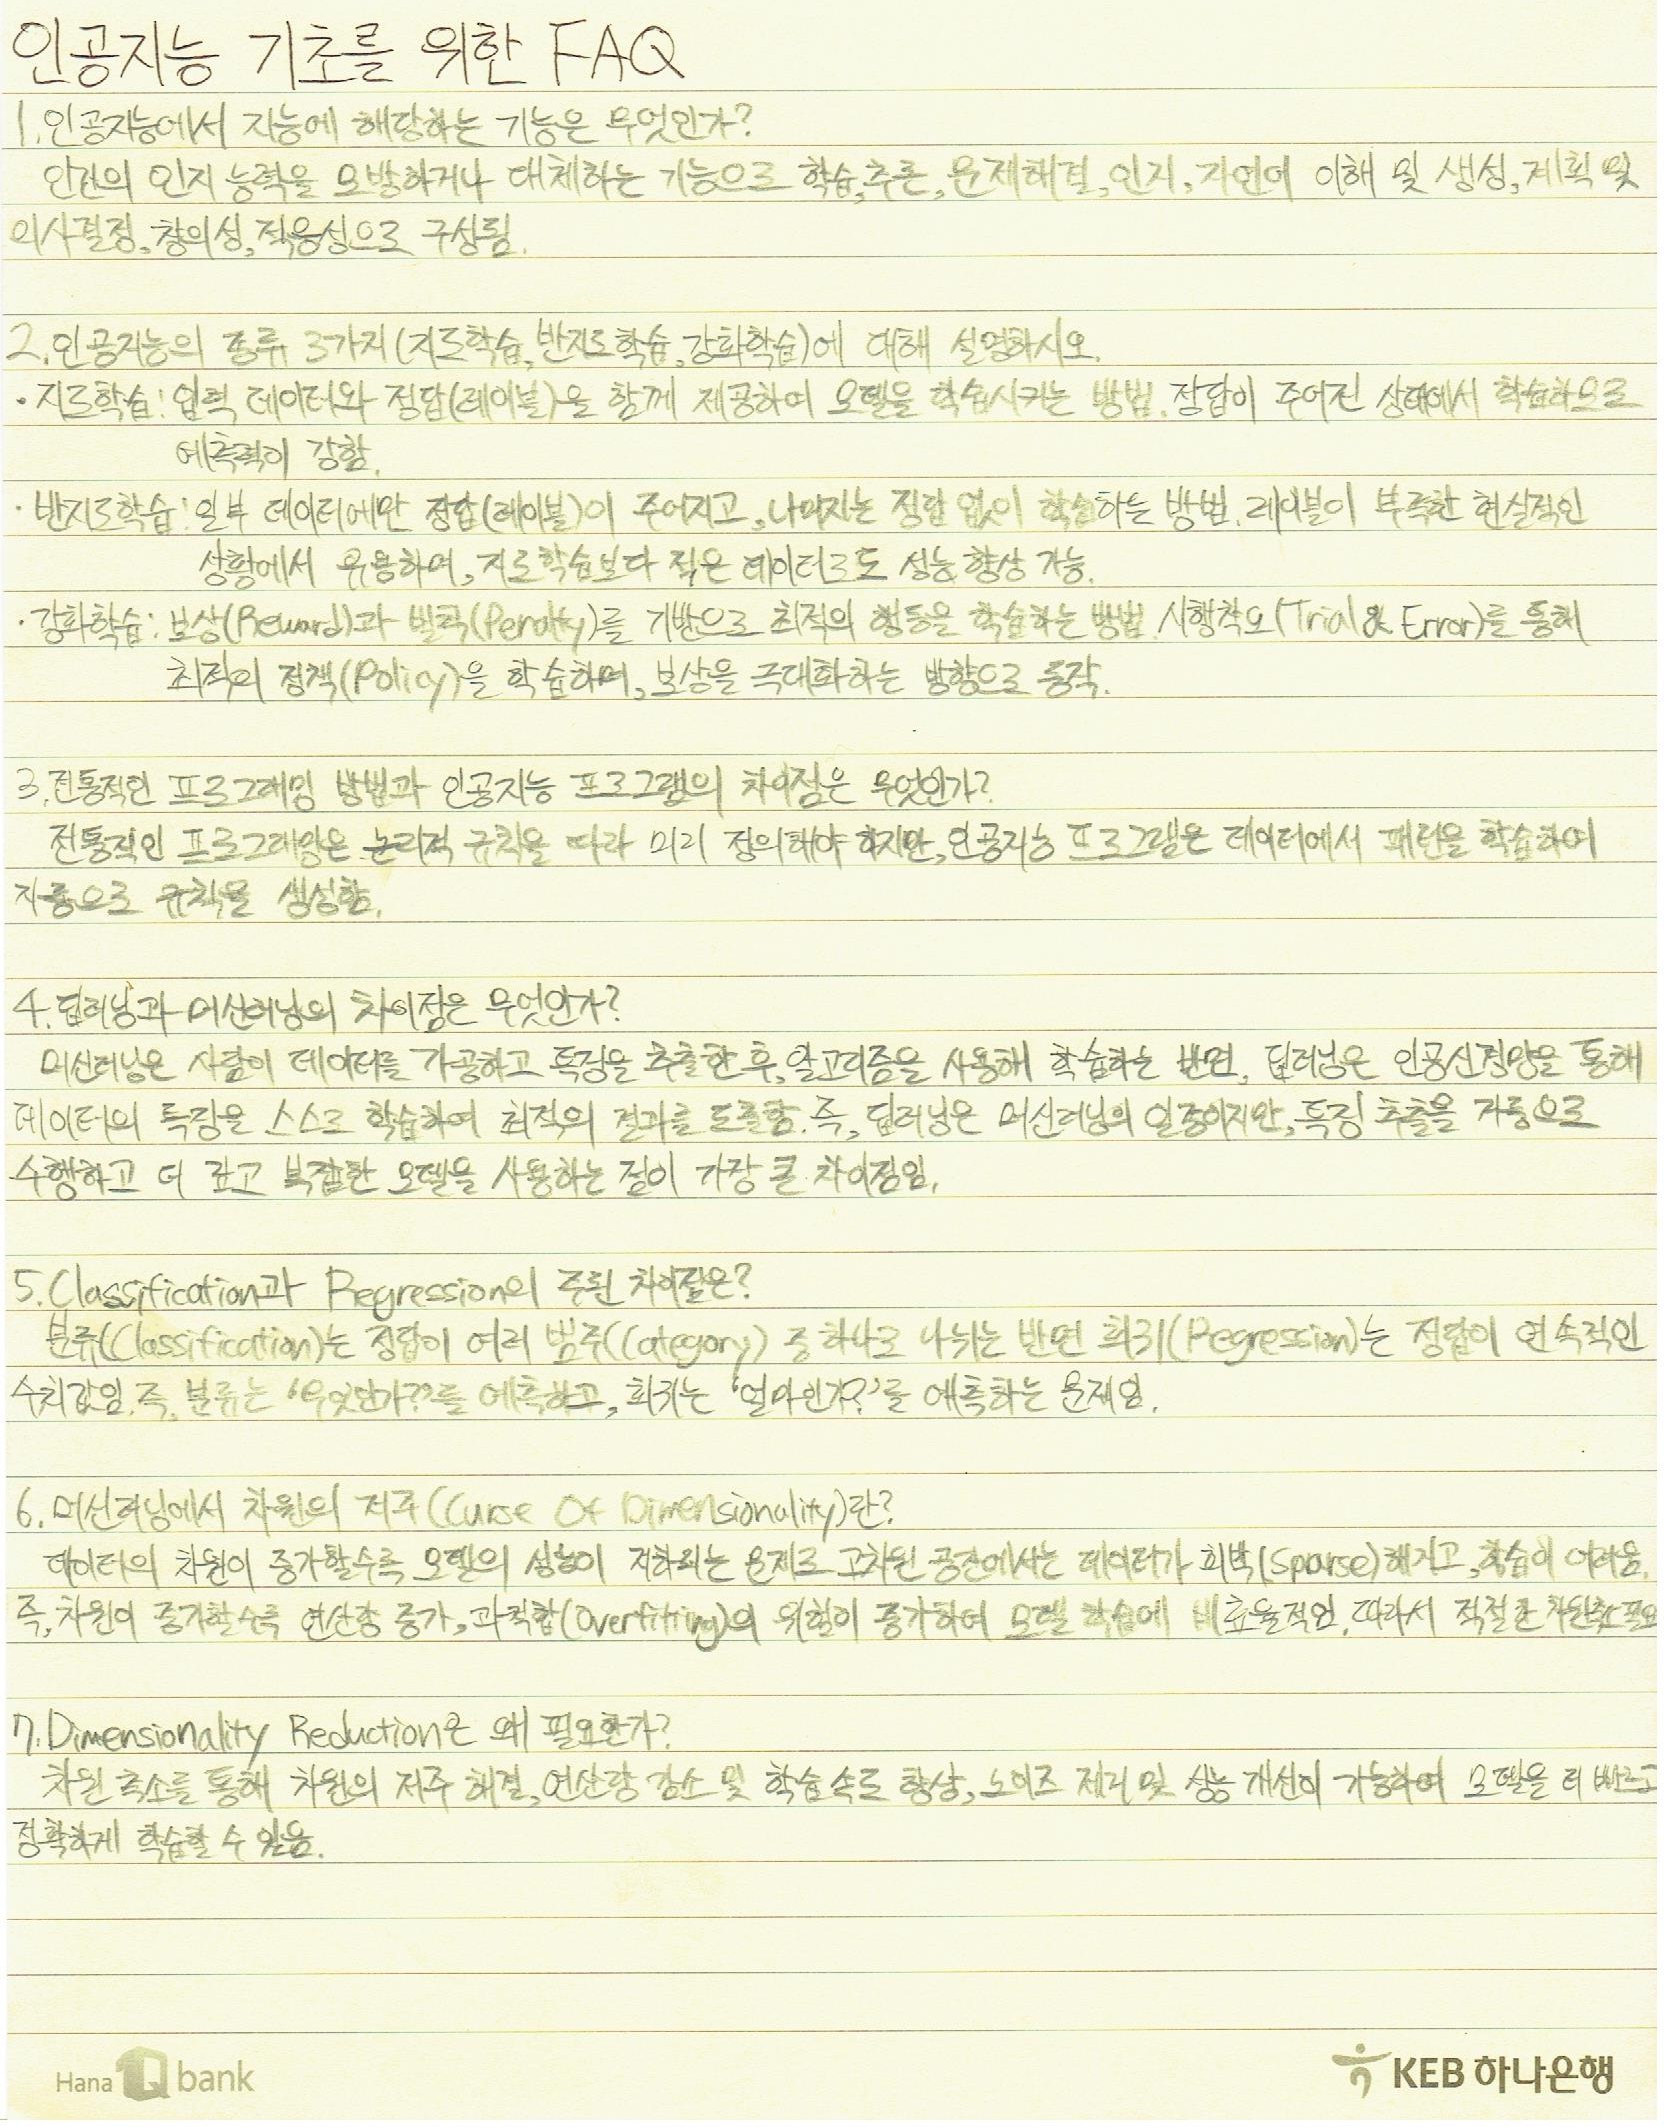 인공지능 기초를 위한 FAQ
1. 인공지능에서 지능에 해당하는 기능은 무엇인가?
인간의 인지 능력을 모방하거나 대체하는 기능으로 학습, 추론, 문제해결, 인지, 자연어 이해 및 생성, 계획 및
의사결정, 창의성, 적응성으로 구성됨.
2. 인공지능의 종류 3가지(지도학습, 반지도학습, 강화학습)에 대해 설명하시오.
· 지도학습: 입력 데이터와 정답(레이블)을 함께 제공하여 모델을 학습시키는 방법. 정답이 주어진 상태에서 학습하므로
예측력이 강함.
· 반지도학습: 일부 데이터에만 정답(레이블)이 주어지고, 나머지는 정답 없이 학습하는 방법. 레이블이 부족한 현실적인
상황에서 유용하며, 지도학습보다 적은 데이터로도 성능 향상 가능.
· 강화학습: 보상(Reward)과 벌칙(Penalty)를 기반으로 최적의 행동을 학습하는 방법. 시행착오(Trial & Error)를 통해
최적의 정책(Policy)을 학습하며, 보상을 극대화하는 방향으로 동작.
3. 전통적인 프로그래밍 방법과 인공지능 프로그램의 차이점은 무엇인가?
전통적인 프로그래밍은 논리적 규칙을 따라 미리 정의해야 하지만, 인공지능 프로그램은 데이터에서 패턴을 학습하여
자동으로 규칙을 생성함.
4. 딥러닝과 머신러닝의 차이점은 무엇인가?
머신러닝은 사람이 데이터를 가공하고 특징을 추출한 후, 알고리즘을 사용해 학습하는 반면, 딥러닝은 인공신경망을 통해
데이터의 특징을 스스로 학습하여 최적의 결과를 도출함. 즉, 딥러닝은 머신러닝의 일종이지만, 특징 추출을 자동으로
수행하고 더 깊고 복잡한 모델을 사용하는 점이 가장 큰 차이점임.
5. Classification과 Regression의 주된 차이점은?
분류(Classification)는 정답이 여러 범주(Category) 중 하나로 나뉘는 반면 회귀(Regression)는 정답이 연속적인
수치값임. 즉, 분류는 '무엇인가?'를 예측하고, 회귀는 '얼마인가?'를 예측하는 문제임.
6. 머신러닝에서 차원의 저주(Curse Of Dimensionality)란?
데이터의 차원이 증가할수록 모델의 성능이 저하되는 문제로 고차원 공간에서는 데이터가 희박(Sparse)해지고, 학습이 어려움.
즉, 차원이 증가할수록 연산량 증가, 과적합(Overfitting)의 위험이 증가하여 모델 학습에 비효율적임. 따라서 적절한 차원축소 필요
7. Dimensionality Reduction은 왜 필요한가?
차원 축소를 통해 차원의 저주 해결, 연산량 감소 및 학습 속도 향상, 노이즈 제거 및 성능 개선이 가능하여 모델을 더 빠르고
정확하게 학습할 수 있음.
Hana 1Q bank
KEB 하나은행